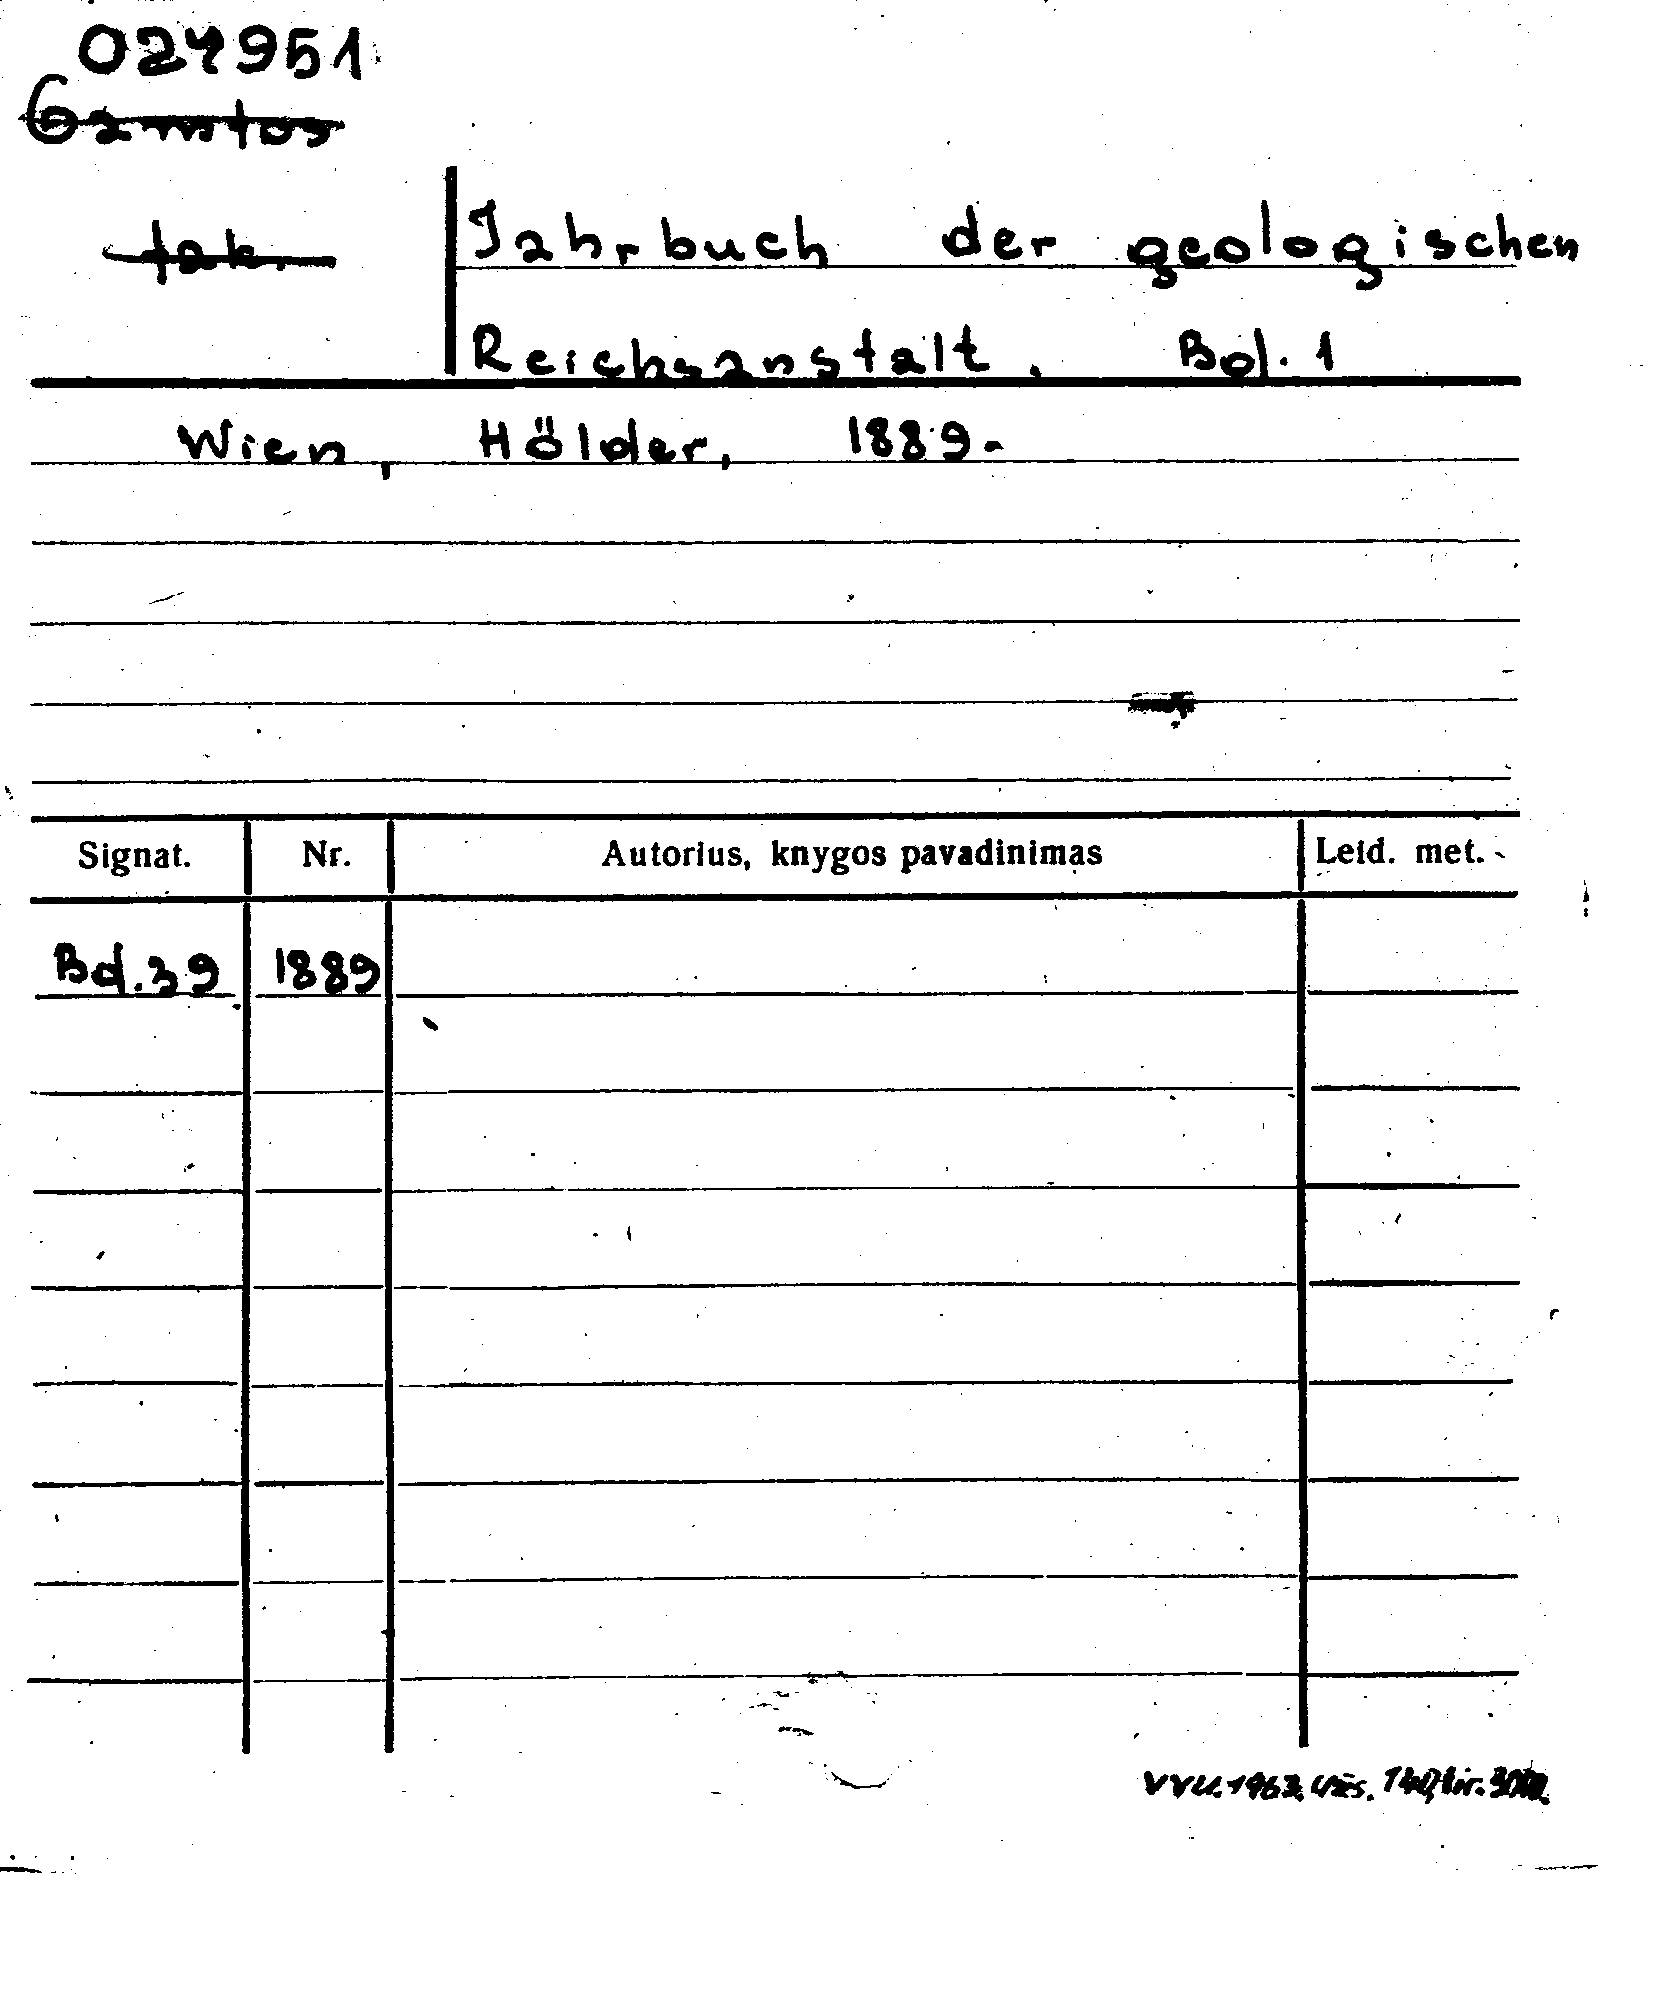 024951
Gamtos
fak.
Jahrbuch der geologischen
Reichsanstalt. Bd. 1
Wien, Hölder, 1889-
Signat. Nr. Autorius, knygos pavadinimas Leid. met.
Bd.39 1889
VVU. 1963. Užs. 140, tir.